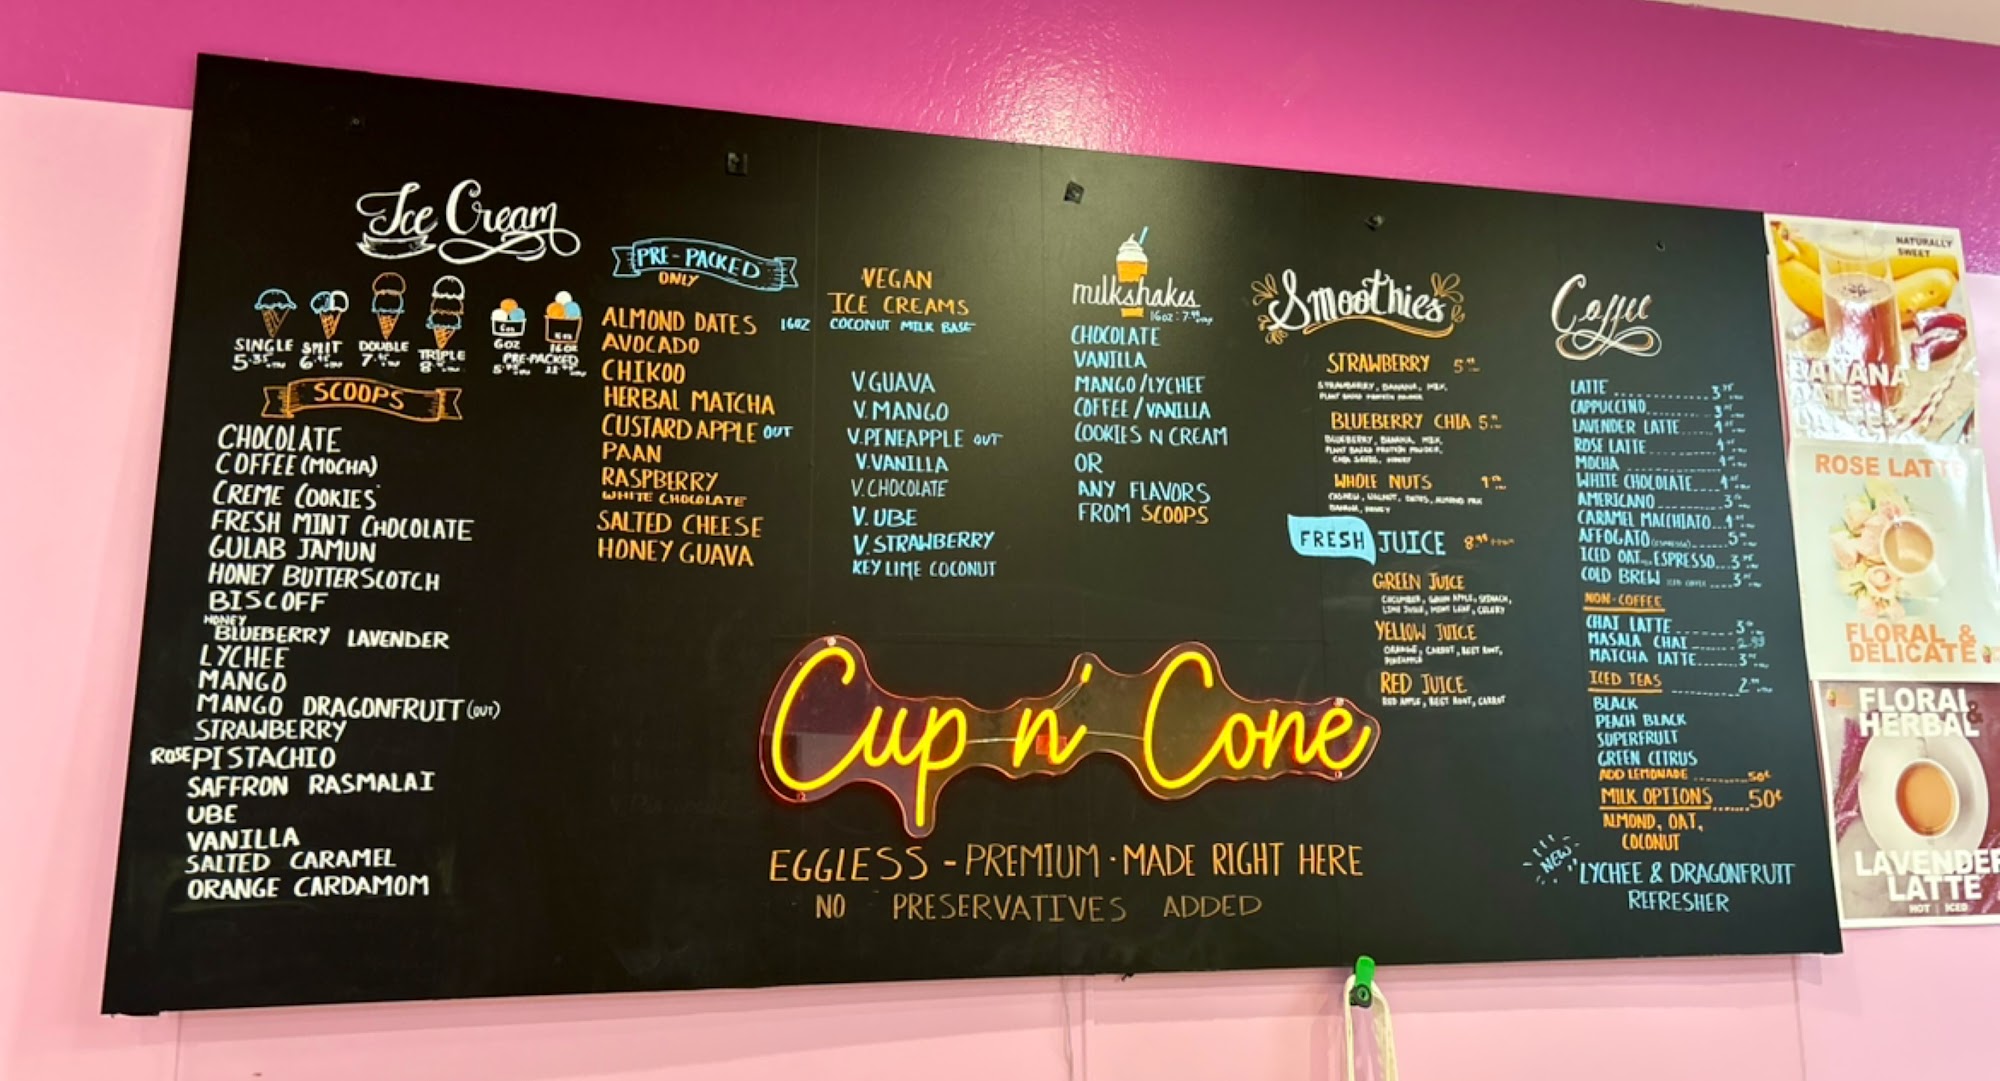 Ice Cream
SINGLE SPLIT DOUBLE TRIPLE 6OZ 16OZ
PRE-PACKED
SCOOPS
CHOCOLATE
COFFEE (MOCHA)
CREME COOKIES
FRESH MINT CHOCOLATE
GULAB JAMUN
HONEY BUTTERSCOTCH
BISCOFF
HONEY
BLUEBERRY LAVENDER
LYCHEE
MANGO
MANGO DRAGONFRUIT (OUT)
STRAWBERRY
ROSE PISTACHIO
SAFFRON RASMALAI
UBE
VANILLA
SALTED CARAMEL
ORANGE CARDAMOM
PRE-PACKED
ONLY
ALMOND DATES 16OZ
AVOCADO
CHIKOO
HERBAL MATCHA
CUSTARD APPLE OUT
PAAN
RASPBERRY
WHITE CHOCOLATE
SALTED CHEESE
HONEY GUAVA
VEGAN
ICE CREAMS
COCONUT MILK BASE
V.GUAVA
V.MANGO
V.PINEAPPLE OUT
V.VANILLA
V.CHOCOLATE
V.UBE
V.STRAWBERRY
KEY LIME COCONUT
milkshakes
16oz: 7.99
CHOCOLATE
VANILLA
MANGO/LYCHEE
COFFEE/VANILLA
COOKIES N CREAM
OR
ANY FLAVORS
FROM SCOOPS
Smoothies
STRAWBERRY
STRAWBERRY, BANANA, MILK,
PLANT BASED PROTEIN POWDER
BLUEBERRY CHIA
BLUEBERRY, BANANA, MILK,
PLANT BASED PROTEIN POWDER,
CHIA SEEDS, HONEY
WHOLE NUTS
CASHEW, WALNUT, DATES, ALMOND MILK
BANANA, HONEY
FRESH JUICE 8.99
GREEN JUICE
CUCUMBER, GREEN APPLE, SPINACH,
LIME JUICE, MINT LEAF, CELERY
YELLOW JUICE
ORANGE, CARROT, BEET ROOT,
PINEAPPLE
RED JUICE
RED APPLE, BEET ROOT, CARROT
Coffee
LATTE
CAPPUCCINO
LAVENDER LATTE
ROSE LATTE
MOCHA
WHITE CHOCOLATE
AMERICANO
CARAMEL MACCHIATO
AFFOGATO (ESPRESSO)
ICED OAT ESPRESSO
COLD BREW ICED COFFEE
NON-COFFEE
CHAI LATTE
MASALA CHAI 2.99
MATCHA LATTE
ICED TEAS
BLACK
PEACH BLACK
SUPERFRUIT
GREEN CITRUS
ADD LEMONADE 50¢
MILK OPTIONS 50¢
ALMOND, OAT,
COCONUT
NEW
LYCHEE & DRAGONFRUIT
REFRESHER
Cup n' Cone
EGGLESS - PREMIUM · MADE RIGHT HERE
NO PRESERVATIVES ADDED
NATURALLY
SWEET
BANANA
DATE
ROSE LATTE
FLORAL &
DELICATE
FLORAL &
HERBAL
LAVENDER
LATTE
HOT | ICED